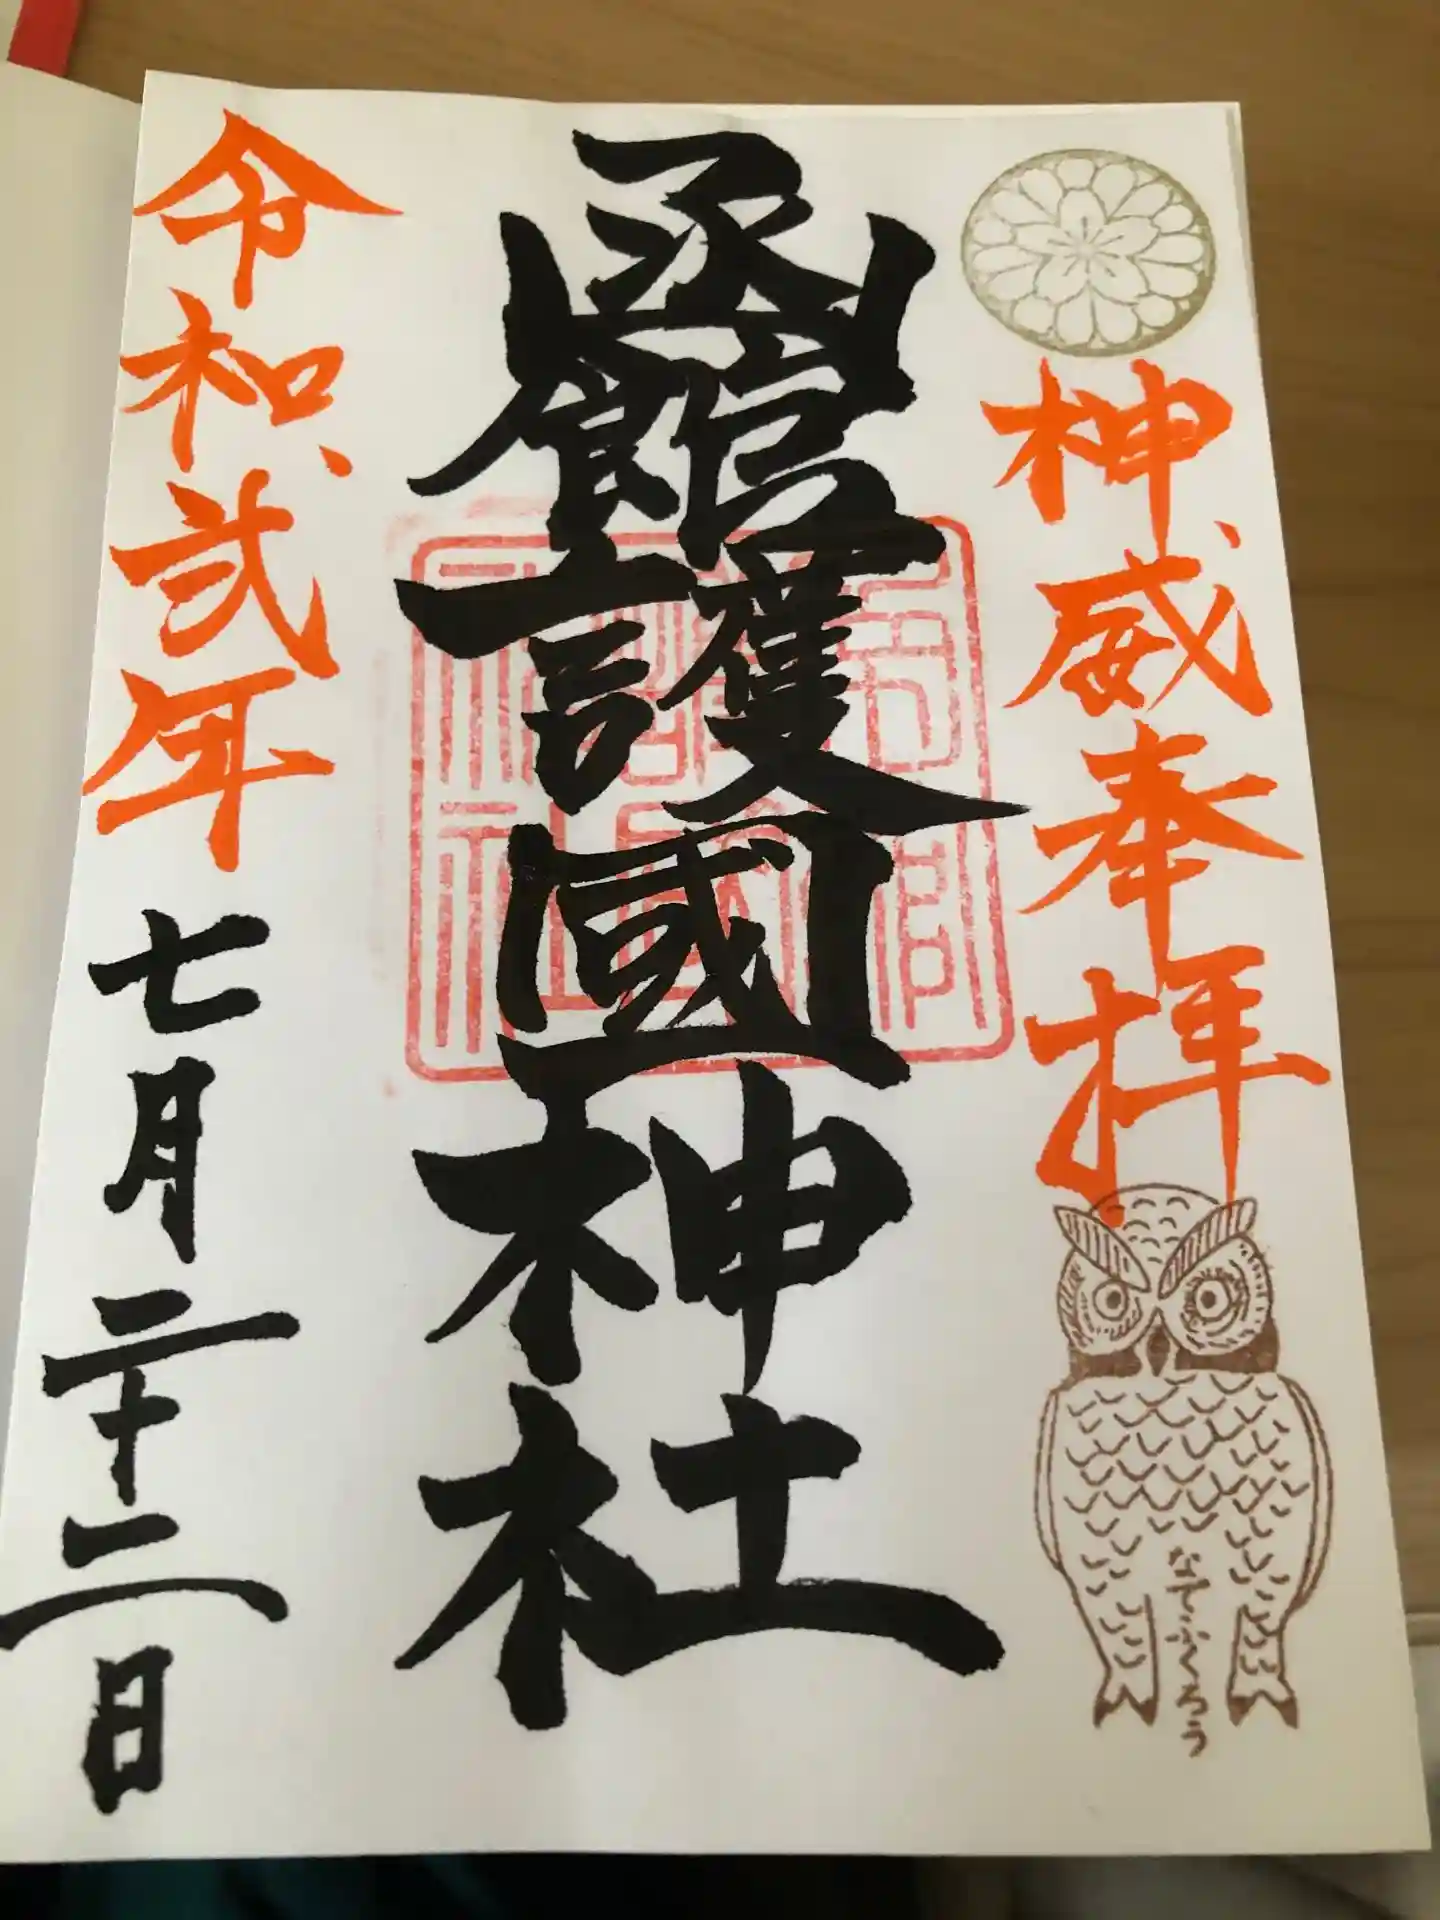 神威奉拝
なでふくろう
函館護國神社
令和弐年七月二十二日